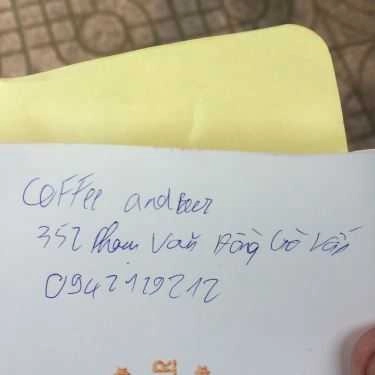 Coffee and Beer
352 Phạm Văn Đồng Gò Vấp
0942129212